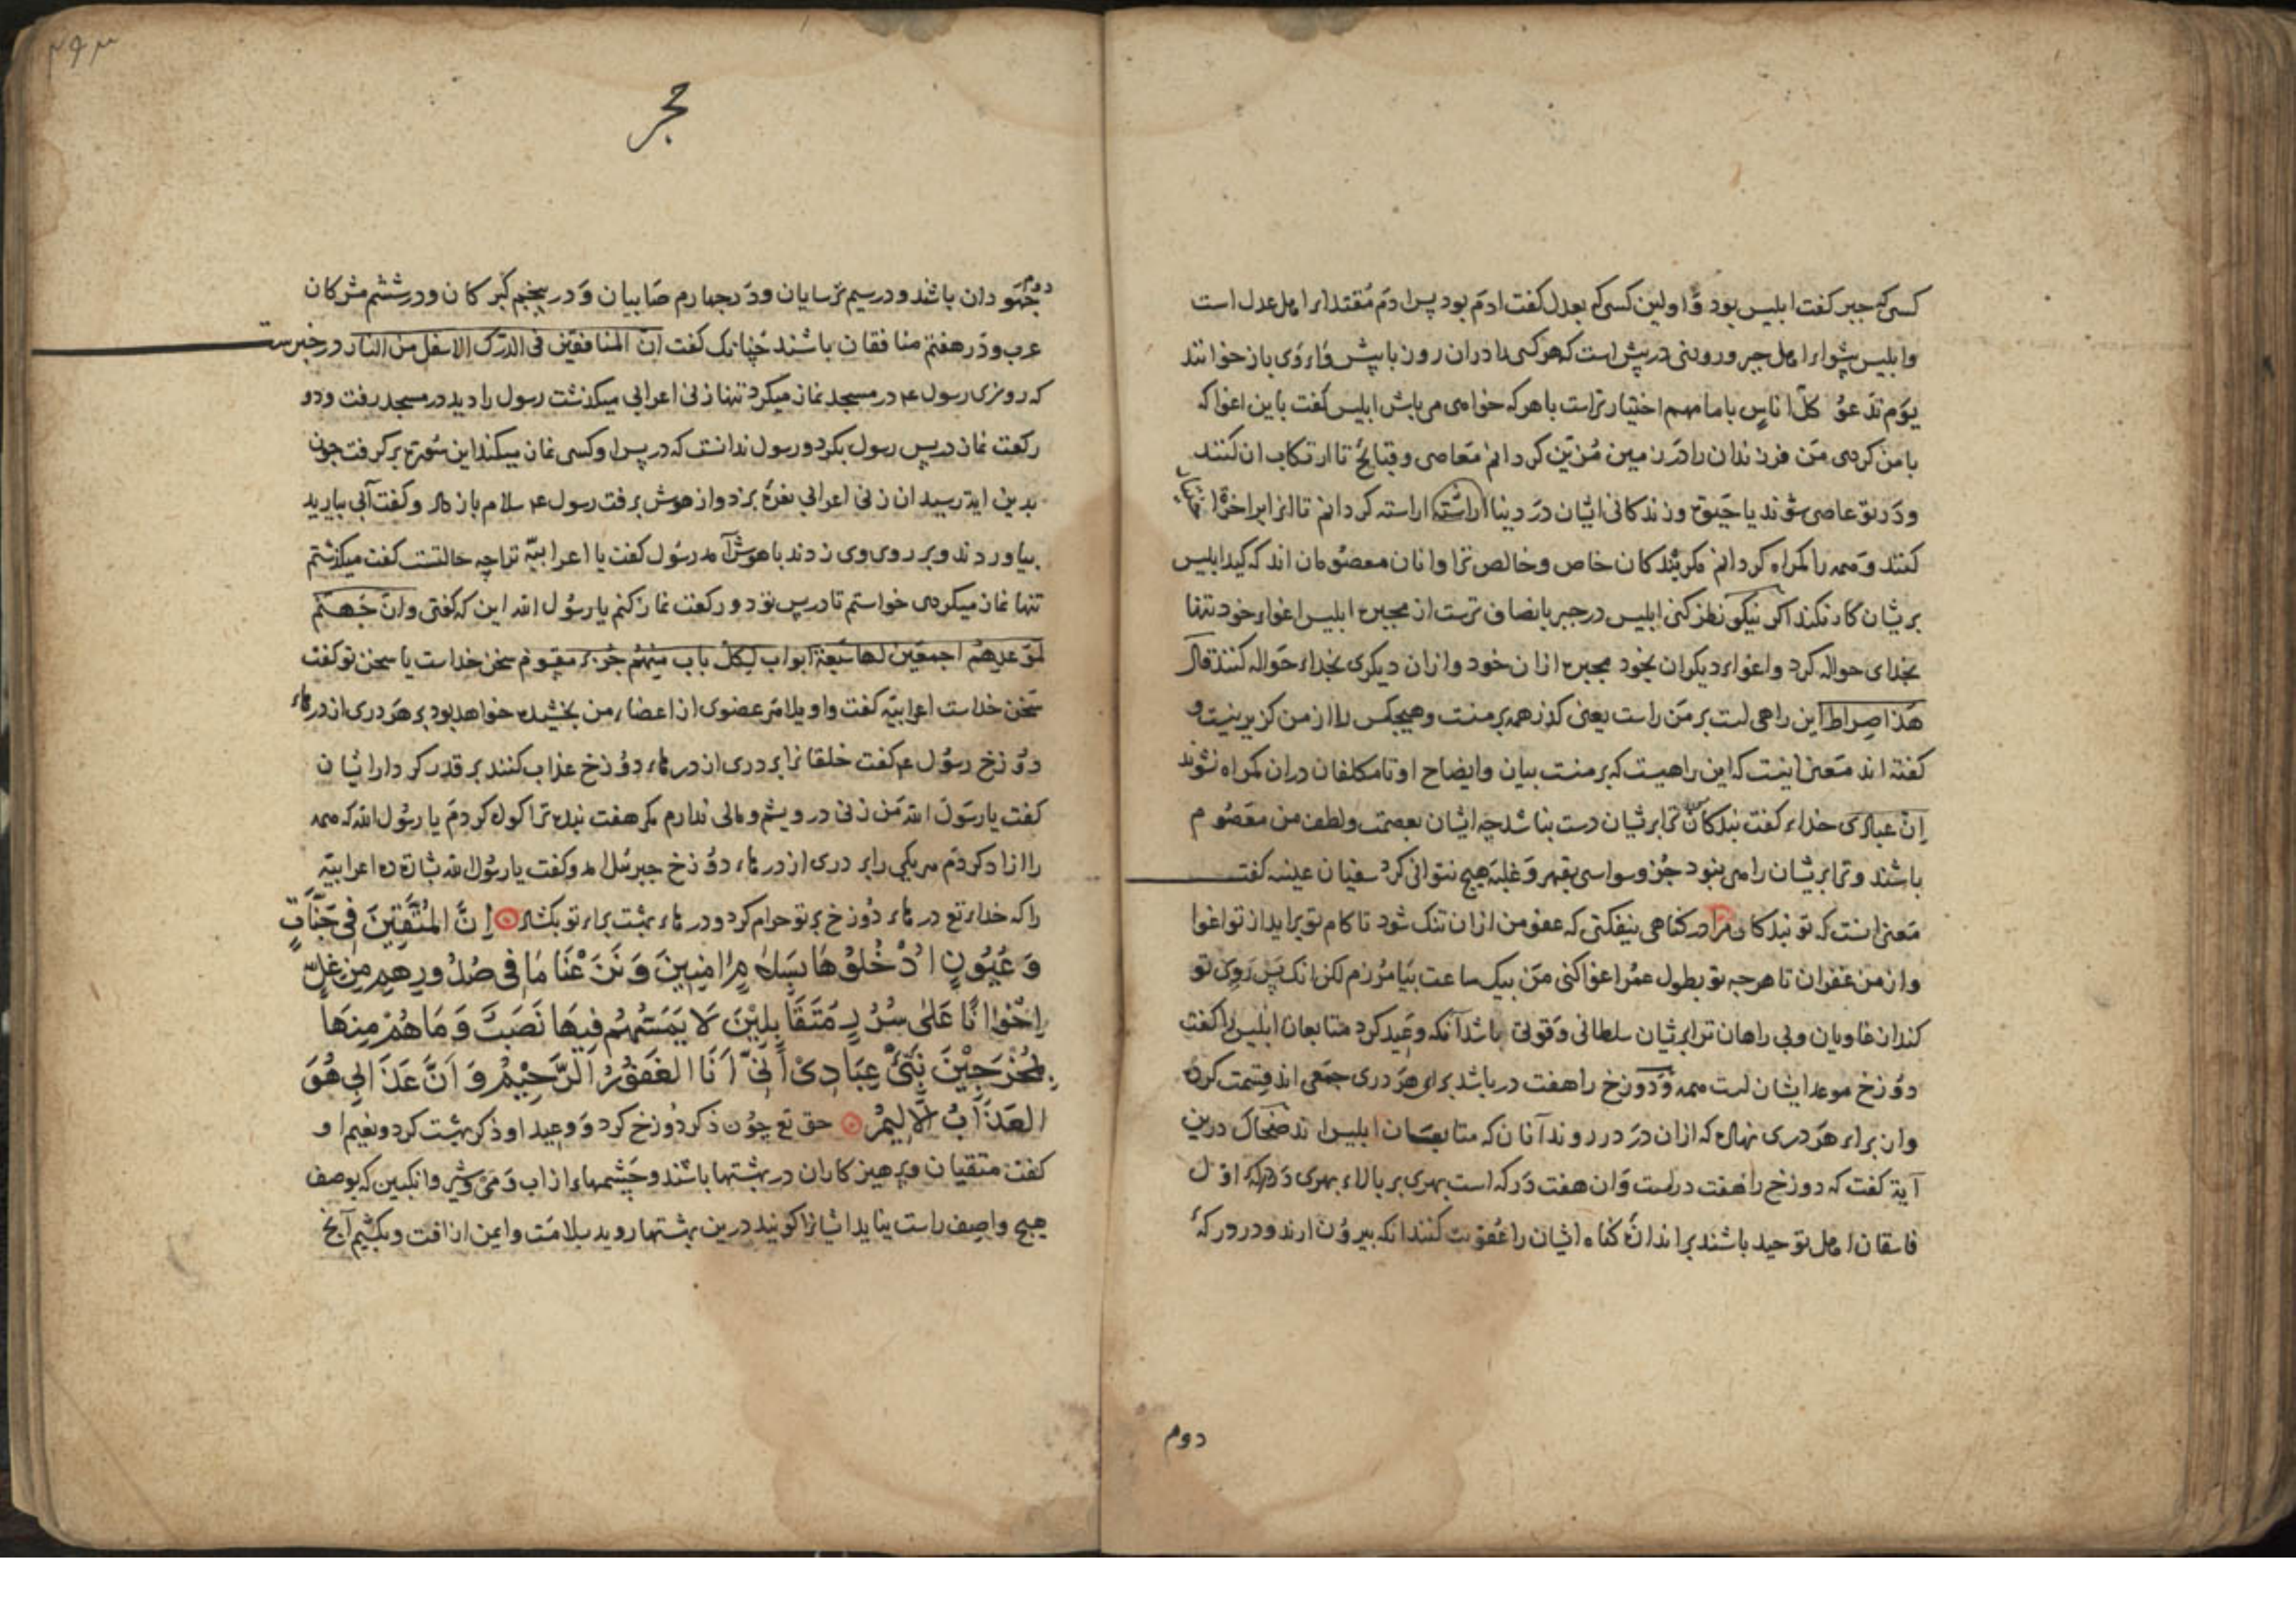 کسی که جبر کفت ابلیس بود و اولین کسی که بعدل کفت ادم بود پس ادم مقتداء اهل عدل است
وابلیس پیشواء اهل جبر و روزی درپیش است که هرکسی را دران روز با پیش رو وی بازخوانند
یوم ندعو کل اناس بامامهم اختیار تراست باهرکه خواهی می باش ابلیس کفت باین اغوا که
بامن کردی من فرزندان را در زمین مزین کردانم معاصی و قبایح تا ارتکاب ان کنند
ودر تو عاصی شوند یا حیوة و زندکانی ایشان در دنیا اراسته کردانم تا اثر ابر اخرة
کنند وهمه را کمراه کردانم مکر بندکان خاص وخالص ترا وانان معصومان اند که کید ابلیس
بریشان کار نکند اکر نیکو نظر کنی ابلیس در جبر بانصاف ترست از مجبره ابلیس اغواء خود تنها
بخدای حواله کرد و اغواء دیکران بخود مجبره ازان خود و ازان دیکری بخداء حواله کنند قال
هذا صراط این راهی است بر من راست یعنی کذر همه برمنست وهیچکس را از من کزیر نیست و
کفته اند معنی اینست که این راهیست که بر منست بیان وایضاح او تا مکلفان دران کمراه نشوند
ان عبادی خداء کفت بندکان من ترا بریشان دست نباشد چه ایشان بعصمت ولطف من معصوم
باشند و ترا بریشان راهی نبود جز وسواسی بقهر و غلبه هیچ نتوانی کرد سفیان عیینه کفت
معنی انست که تو بندکان مرا در کناهی نیفکنی که عفو من ازان تنک شود تا کام تو براید از تو اغوا
واز من غفران تا هرچه تو بطول عمر اغوا کنی من بیک ساعت بیامرزم لکن انک پس روی تو
کند از غاویان وبی راهان ترا بریشان سلطانی و قوتی باشد آنکه وعید کرد متابعان ابلیس را کفت
دوزخ موعد ایشان است همه و دوزخ را هفت در باشد براء هر دری جمعی اند قسمت کرده
وان براء هر دری نهاده که ازان در در روند آنان که متابعان ابلیس اند ضحاک درین
آیة کفت که دوزخ را هفت درست وان هفت درکه است بهری بر بالاء بهری درکه اول
فاسقان اهل توحید باشند براندازه کناه ایشان را عقوبت کنند انکه بیرون ارند و در درکه
دوم
۲۶۳
حجر
دوم جهودان باشند و در سیم ترسایان و در چهارم صابیان و در پنجم کبرکان و در ششم مشرکان
عرب و در هفتم منافقان باشند چنانک کفت ان المنافقین فی الدرک الاسفل من النار در خبرست
که روزی رسول ع در مسجد نماز میکرد تنها زنی اعرابی میکذشت رسول را دید در مسجد رفت و دو
رکعت نماز در پس رسول بکرد و رسول ندانست که در پس او کسی نماز میکند این سورة بر کرفت چون
بدین ایة رسید ان زنی اعرابی نعره بزد و از هوش برفت رسول ع سلام باز داد و کفت آبی بیارید
بیاوردند و بر روی وی زدند باهوش آمد رسول کفت یا اعرابیة ترا چه حالتست کفت میکذشتم
تنها نماز میکردی خواستم تا در پس تو دو رکعت نماز کنم یا رسول الله این که کفتی وان جهنم
لموعدهم اجمعین لها سبعة ابواب لکل باب منهم جزء مقسوم سخن خداست یا سخن تو کفت
سخن خداست اعرابیة کفت واویلا هر عضوی از اعضاء من بخشیده خواهد بود بر هر دری از درهاء
دوزخ رسول ع کفت خلقانرا بر دری از درهاء دوزخ عذاب کنند بر قدر کردار ایشان
کفت یا رسول الله من زنی درویشم و مالی ندارم مکر هفت بنده ترا کواه کردم یا رسول الله که همه
را ازاد کردم هر یکی را بر دری از درهاء دوزخ جبرئیل امد و کفت یا رسول الله بشارة ده اعرابیة
را که خداء تع درهاء دوزخ بر تو حرام کرد و درهاء بهشت براء تو بکشاد اِنَّ المُتَّقِینَ فِی جَنَّاتٍ
وَعُیُونٍ اُدْخُلُوْهَا بِسَلَامٍ اٰمِنِیْنَ وَنَزَعْنَا مَا فِی صُدُورِهِم مِن غِلٍّ
اِخْوَانًا عَلٰی سُرُرٍ مُتَقَابِلِیْنَ لَا یَمَسُّهُمْ فِیهَا نَصَبٌ وَمَا هُمْ مِنهَا
بِمُخْرَجِیْنَ نَبِّئْ عِبَادِیْ اَنِّیْ اَنَا الغَفُوْرُ الرَّحِیْمُ وَاَنَّ عَذَابِی هُوَ
العَذَابُ الْاَلِیْمُ حق تع چون ذکر دوزخ کرد و وعید او ذکر بهشت کرد و نعیم او
کفت متقیان و پرهیزکاران در بهشتها باشند و چشمهاء از اب و می و شیر وانکبین که بوصف
هیچ واصف راست نیاید ایشانرا کویند درین بهشتها روید بسلامت وایمن از افت و بکشیم آنچ